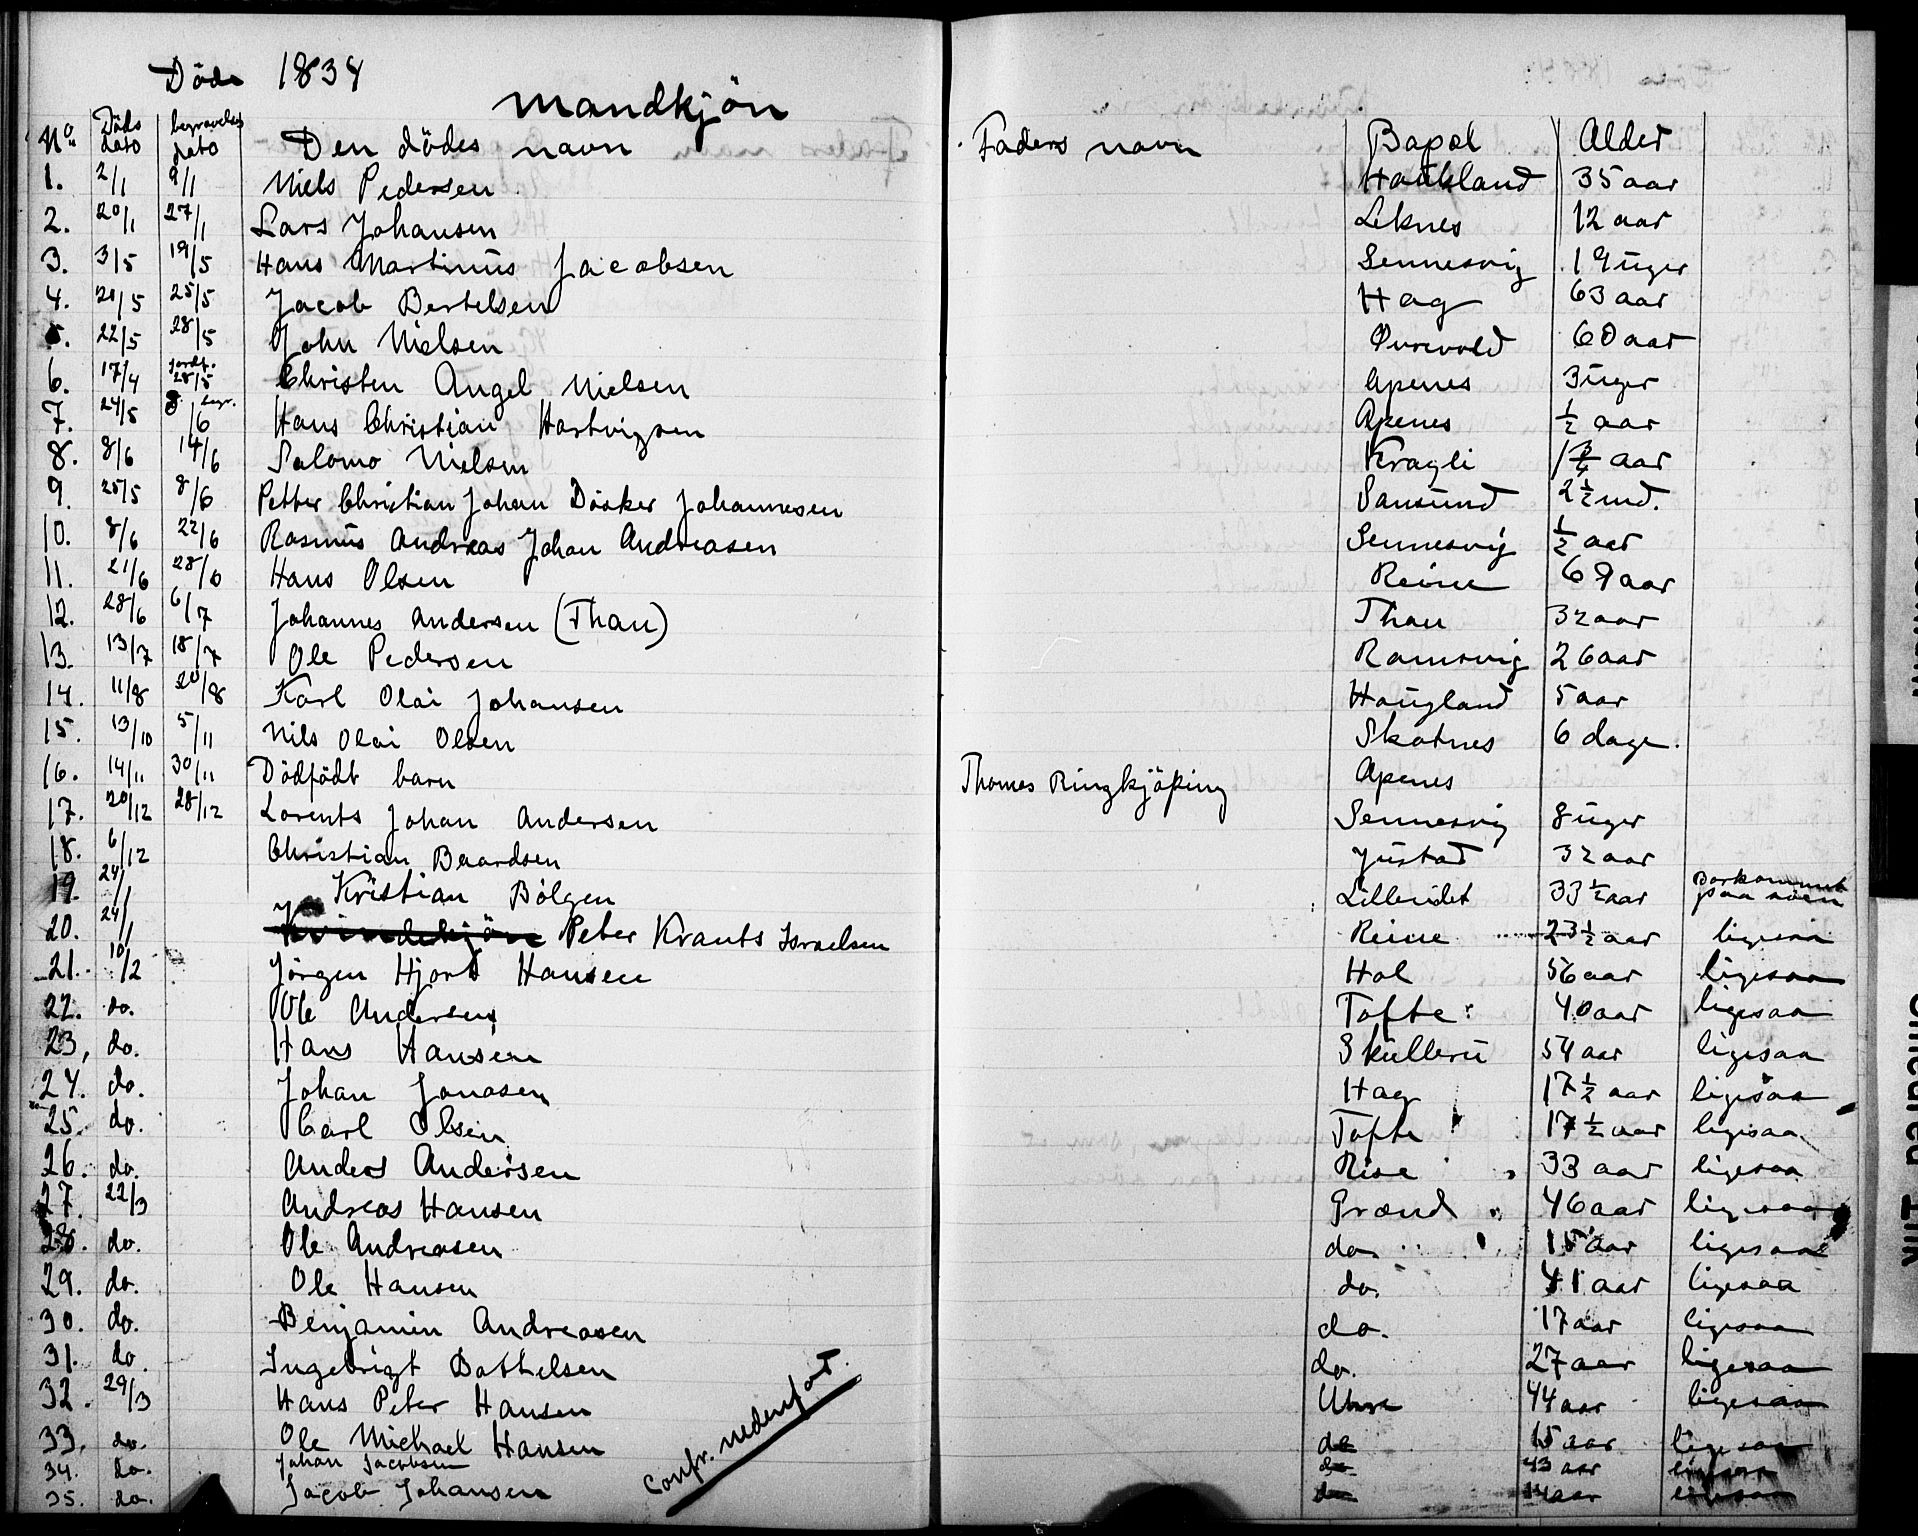 Döde 1834
Mandkjön
No. Döds dato begravelses dato Den dödes navn Faders navn Bopæl Alder
1. 2/1 9/1 Niels Pedersen Haukland 35 aar
2. 20/1 27/1 Lars Johansen Leknes 12 aar
3. 3/5 19/5 Hans Martinus Jacobsen Sennesvig 19 uger
4. 20/5 25/5 Jacob Bertelsen Hag 63 aar
5. 22/5 28/5 John Nielsen Ourevold 60 aar
6. 17/4 jordf. 28/5 Christen Angel Nielsen Apenes 3 uger
7. 24/5 8/6 begr. Hans Christian Hartvigsen Apenes ½ aar
8. 8/6 14/6 Salomo Nielsen Kragli aar
9. 25/5 8/6 Petter Christian Johan Dösker Johannesen Sansund 2½ md.
10. 8/6 22/6 Rasmus Andreas Johan Andreasen Sennesvig ½ aar
11. 21/6 28/6 Hans Olsen Reine 69 aar
12. 28/6 6/7 Johannes Andersen (Thau) Thau 32 aar
13. 13/7 18/7 Ole Pedersen Ramsvig 26 aar
14. 11/8 20/8 Karl Olai Johansen Haugland 5 aar
15. 13/10 5/11 Nils Olai Olsen Skotnes 6 dage.
16. 14/11 30/11 Dödfödt barn Thomas Ringkjöping Apenes
17. 20/12 28/12 Lorents Johan Andersen Sennesvig 8 uger
18. 6/12 Christian Baardsen Justad 32 aar
19. 24/1 Kristian Bolgen Lilleeidet 33½ aar Borkommet paa söen
20. 24/1 Kvindekjön Peter Krants Israelsen Reine 23½ aar ligesaa
21. 10/2 Jörgen Hjort Hansen Hol 56 aar ligesaa
22. do. Ole Andersen Tofte 40 aar ligesaa
23, do. Hans Hansen Skulleru 54 aar ligesaa
24. do. Johan Jonasen Hag 17½ aar ligesaa
25. do. Carl Olsen Tofte 17½ aar ligesaa
26. do. Anders Andersen Rise 33 aar ligesaa
27. 22/3 Andreas Hansen Grænd 46 aar ligesaa
28. do. Ole Andreasen do. 15 aar ligesaa
29. do. Ole Hansen do. 41 aar ligesaa
30. do. Benjamin Andreasen do. 17 aar ligesaa
31. do. Ingebrigt Bothelsen do. 27 aar ligesaa
32. 29/3 Hans Peter Hansen Uhre 44 aar ligesaa
33, do. Ole Michael Hansen do 15 aar ligesaa
34. do. Johan Jacobsen do. 43 aar ligesaa
35. do. Jacob Johansen do 14 aar ligesaa
confr. nedenfor